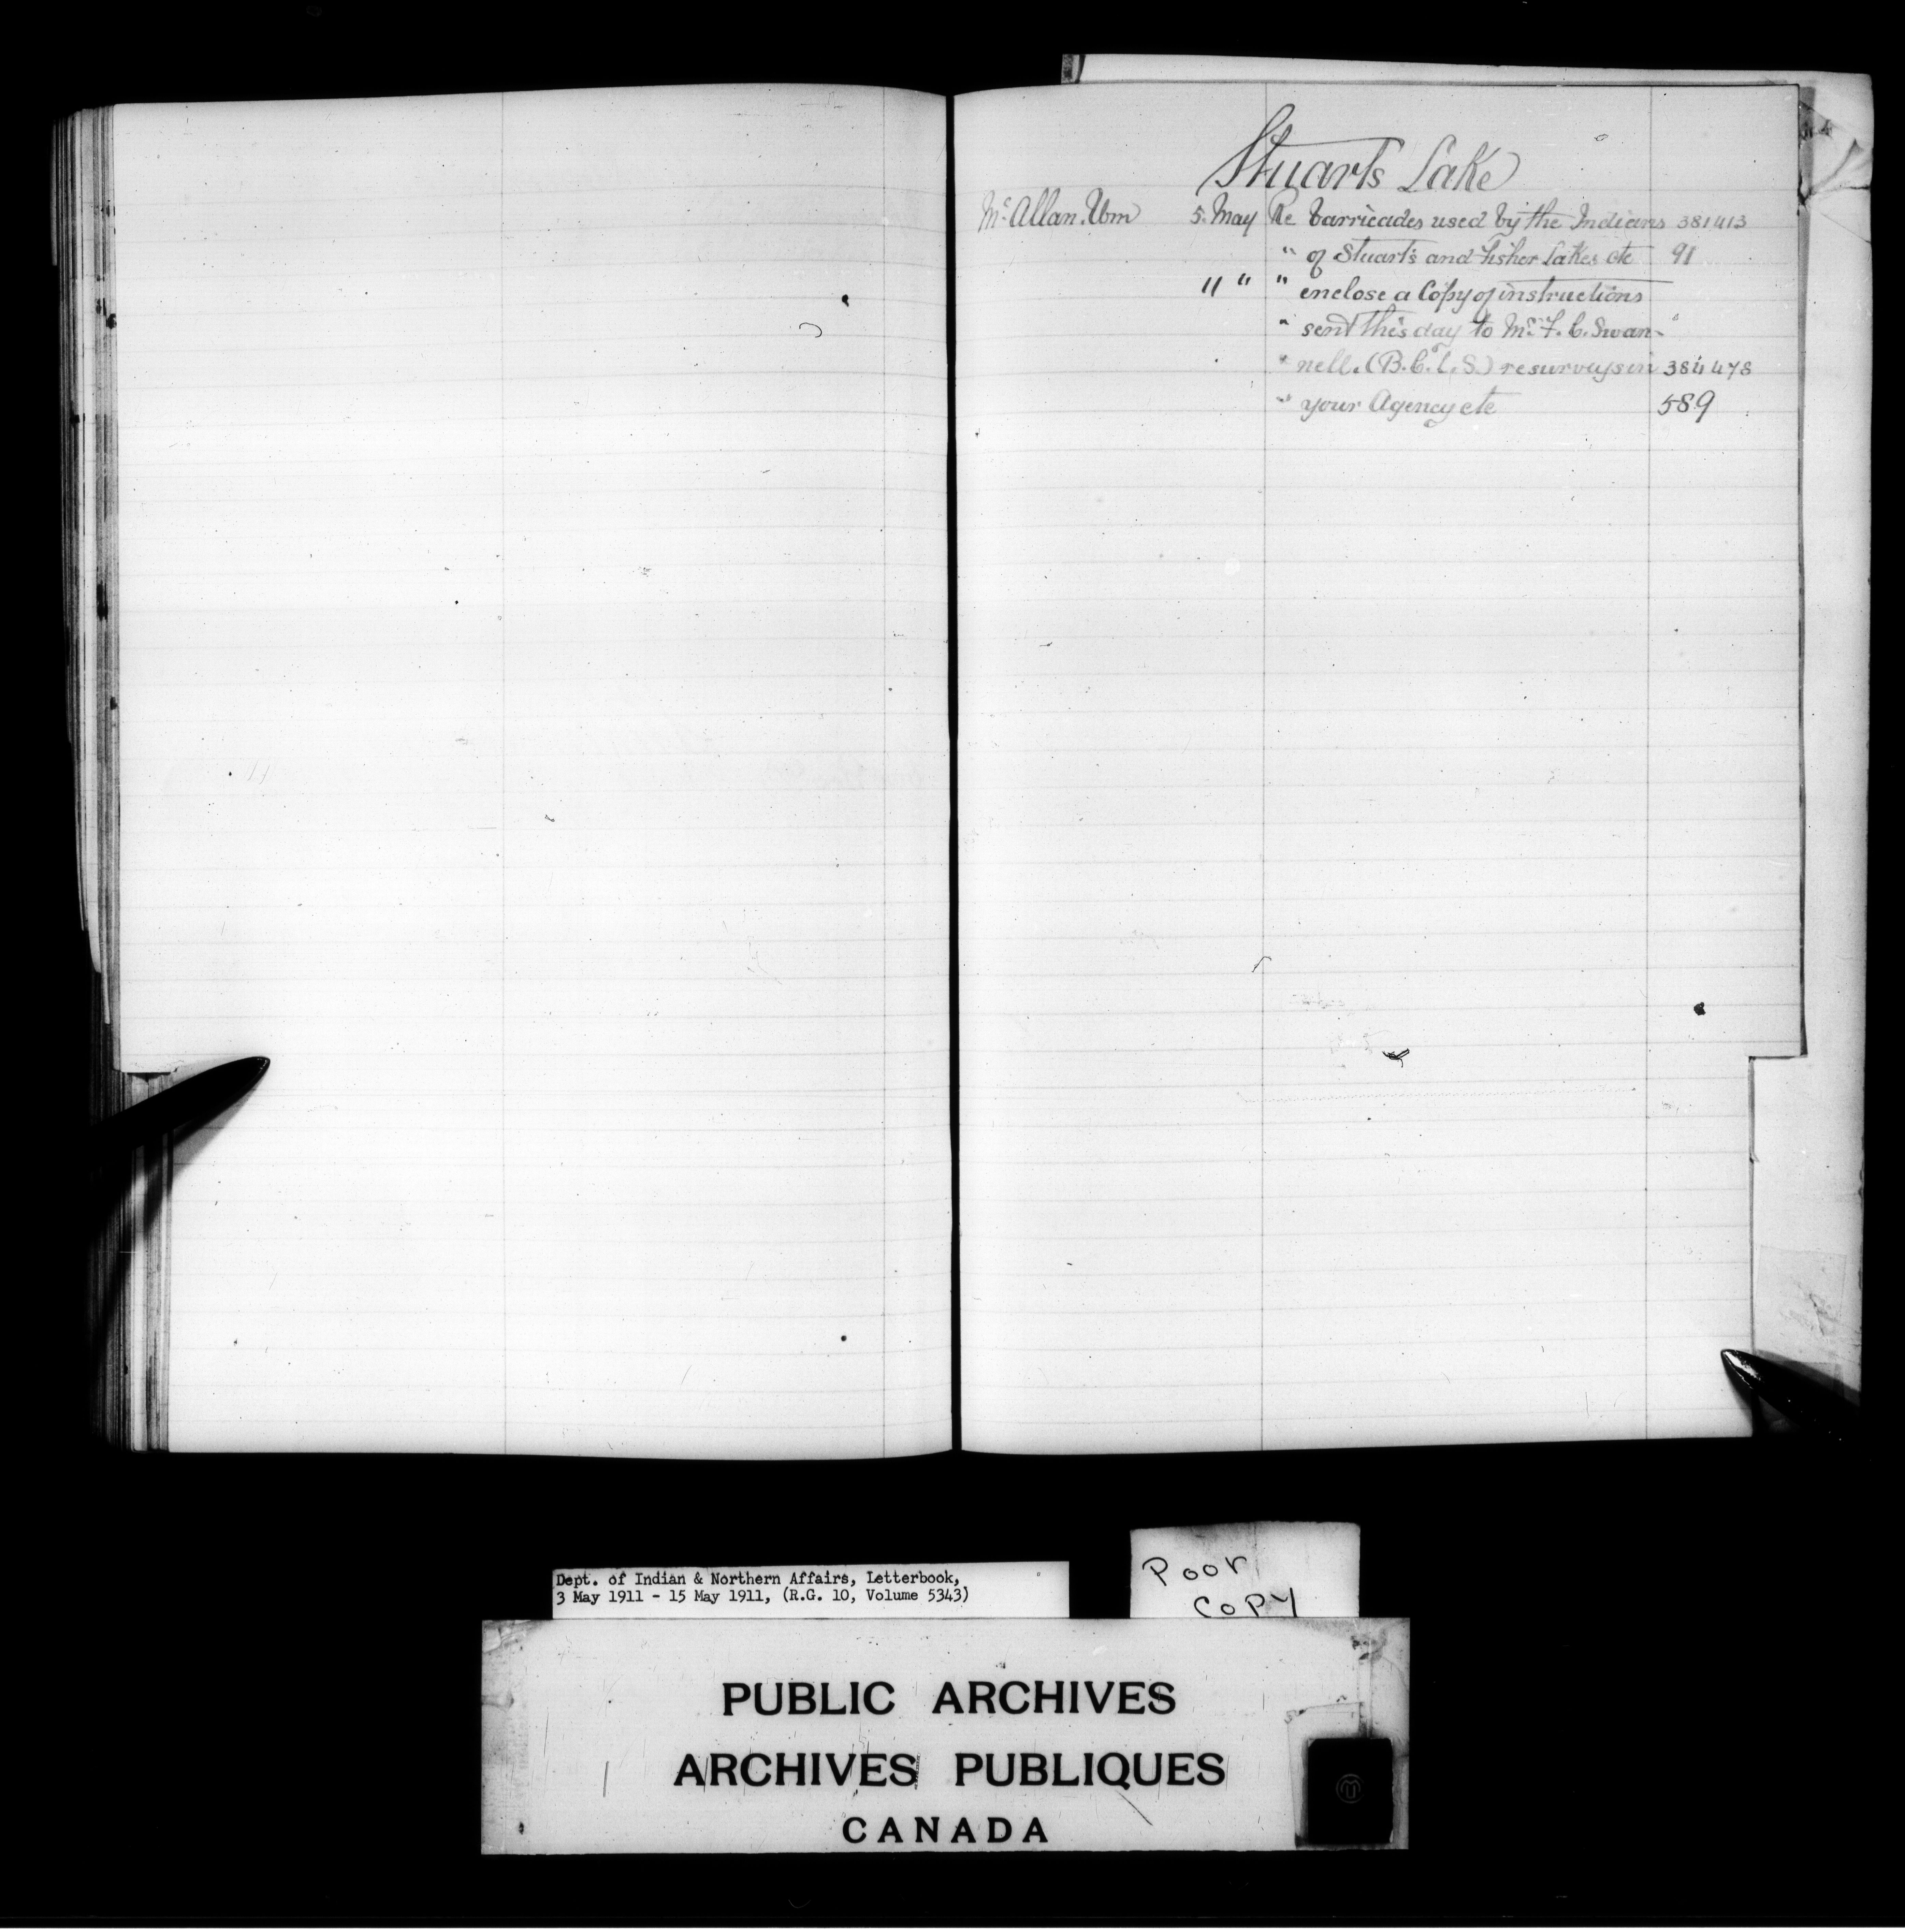 Stuarts Lake
Mc Allan. Wm 5. May Re barricades used by the Indians 381413
" of Stuart's and Fisher Lakes etc 91
11 " " enclose a Copy of instructions
" sent this day to Mr. F. C. Swan-"
" nell. (B.C.L.S.) resurveys in 384478
" your Agency etc 589
Dept. of Indian & Northern Affairs, Letterbook,
3 May 1911 - 15 May 1911, (R.G. 10, Volume 5343)
Poor
Copy
PUBLIC ARCHIVES
ARCHIVES PUBLIQUES
CANADA